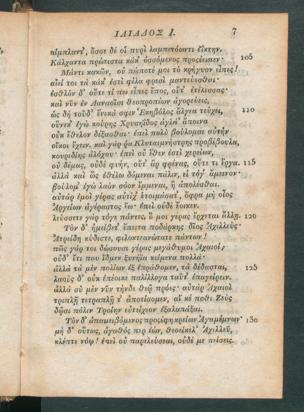 ΙΛΙΑΔΟΣ Ι. 7
πίμπλαντ', ὄσσε δέ οἱ πυρὶ λαμπετόωντι ἐΐκτην.
Κάλχαντα πρώτιστα κάκ' ὀσσόμενος προσέειπεν· 105
Μάντι κακῶν, οὐ πώποτέ μοι τὸ κρήγυον εἶπες!
αἰεί τοι τὰ κάκ' ἐστὶ φίλα φρεσὶ μαντεύεσθαι·
ἐσθλὸν δ' οὔτε τί πω εἶπες ἔπος, οὔτ' ἐτέλεσσας·
καὶ νῦν ἐν Δαναοῖσι θεοπροπέων ἀγορεύεις,
ὡς δὴ τοῦδ' ἕνεκά σφιν Ἑκηβόλος ἄλγεα τεύχει, 110
οὕνεκ' ἐγὼ κούρης Χρυσηΐδος ἀγλά' ἄποινα
οὐκ ἔθελον δέξασθαι· ἐπεὶ πολὺ βούλομαι αὐτὴν
οἴκοι ἔχειν. καὶ γάρ ῥα Κλυταιμνήστρης προβέβουλα,
κουριδίης ἀλόχου· ἐπεὶ οὔ ἑθέν ἐστι χερείων,
οὐ δέμας, οὐδὲ φυὴν, οὔτ' ἂρ φρένας, οὔτε τι ἔργα. 115
ἀλλὰ καὶ ὣς ἐθέλω δόμεναι πάλιν, εἰ τόγ' ἄμεινον·
βούλομ' ἐγὼ λαὸν σόον ἔμμεναι, ἢ ἀπολέσθαι.
αὐτὰρ ἐμοὶ γέρας αὐτίχ' ἑτοιμάσατ', ὄφρα μὴ οἶος
Ἀργείων ἀγέραστος ἔω· ἐπεὶ οὐδὲ ἔοικεν.
λεύσσετε γὰρ τόγε πάντες, ὅ μοι γέρας ἔρχεται ἄλλῃ. 120
Τὸν δ' ἠμείβετ' ἔπειτα ποδάρκης δῖος Ἀχιλλεύς·
Ἀτρείδη κύδιστε, φιλοκτεανώτατε πάντων!
πῶς γάρ τοι δώσουσι γέρας μεγάθυμοι Ἀχαιοί;
οὐδ' ἔτι που ἴδμεν ξυνήϊα κείμενα πολλά·
ἀλλὰ τὰ μὲν πολίων ἐξ ἐπράθομεν, τὰ δέδασται, 125
λαοὺς δ' οὐκ ἐπέοικε παλίλλογα ταῦτ' ἐπαγείρειν.
ἀλλὰ σὺ μὲν νῦν τήνδε θεῷ πρόες· αὐτὰρ Ἀχαιοὶ
τριπλῇ τετραπλῇ τ' ἀποτίσομεν, αἴ κέ ποθι Ζεὺς
δῷσι πόλιν Τροίην εὐτείχεον ἐξαλαπάξαι.
Τὸν δ' ἀπαμειβόμενος προσέφη κρείων Ἀγαμέμνων· 130
μὴ δ' οὕτως, ἀγαθός περ ἐὼν, θεοείκελ' Ἀχιλλεῦ,
κλέπτε νόῳ! ἐπεὶ οὐ παρελεύσεαι, οὐδέ με πείσεις.